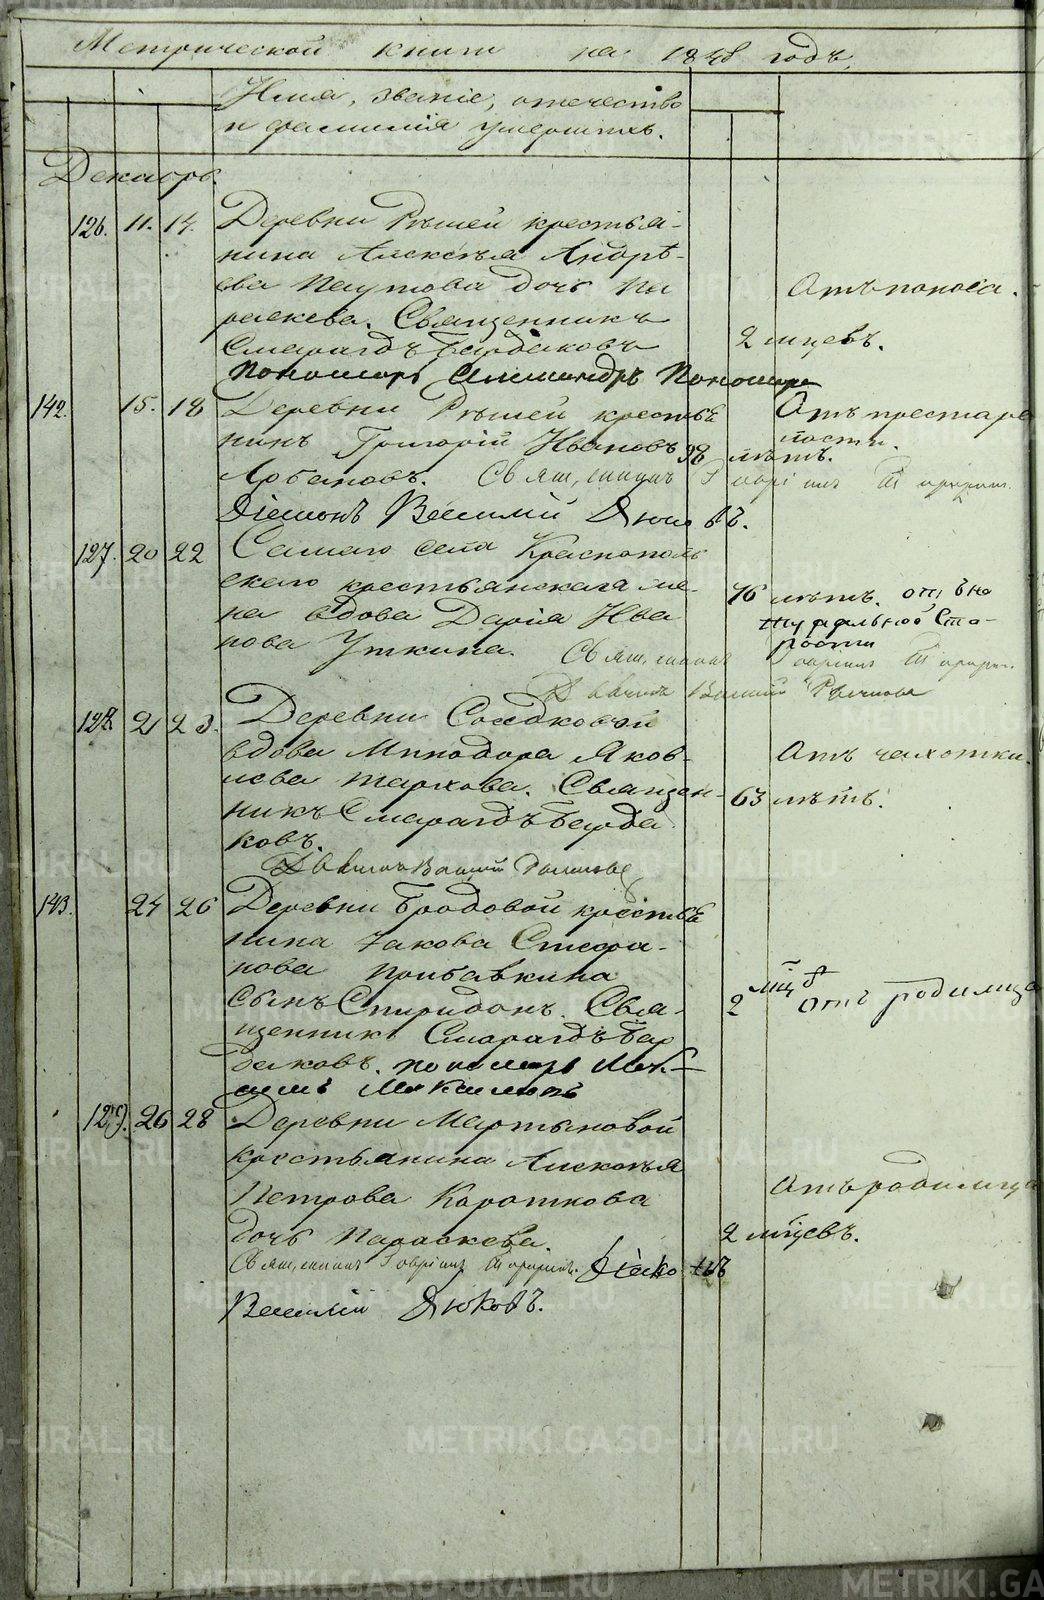 Метрической книги на 1848 годъ.
Имя, званіе, отечество
и фамилія умершихъ.
Декабрь.
126. 11. 14. Деревни Рѣшей крестья-
нина Алексѣя Андрѣ-
ева Паутова дочь Па
раскева. Священникъ
Смарагдъ Бардаковъ
Пономарь Александръ Пономаре
2 мцевъ.
Отъ поноса.
142. 15. 18 Деревни Рѣшей крестье
нинъ Григорій Ивановъ
Лобановъ. Священникъ Гавріилъ
Діаконъ Василій Дюковъ.
98 лѣтъ.
Отъ престаре
лости.
127. 20 22 Самаго села Краснополь
скаго крестьянская же-
на вдова Дарія Ива
нова Уткина. Священникъ Гавріилъ
Діаконъ Василій
76 лѣтъ. отъ на
туральной Ста-
рости
128. 21 23. Деревни
вдова Минодора Яков-
лева Тархова. Священ-
никъ Смарагдъ Барда
ковъ.
Діаконъ Василій
63 лѣтъ.
Отъ чахотки.
143. 24 26 Деревни Бродовой крестье
нина Іакова Стефа-
нова Прибавкина
сынъ Спиридонъ. Свя-
щенникъ Смарагдъ Бар
даковъ. пономарь Мак-
симъ
2 мц
отъ родимца
129. 26 28 Деревни Мартыновой
крестьянина Алексѣя
Петрова Короткова
дочь Параскева.
Священникъ Гавріилъ Діаконъ
Василій Дюковъ.
2 мѣцевъ.
Отъ родимца
METRIKI.GASO-URAL.RU